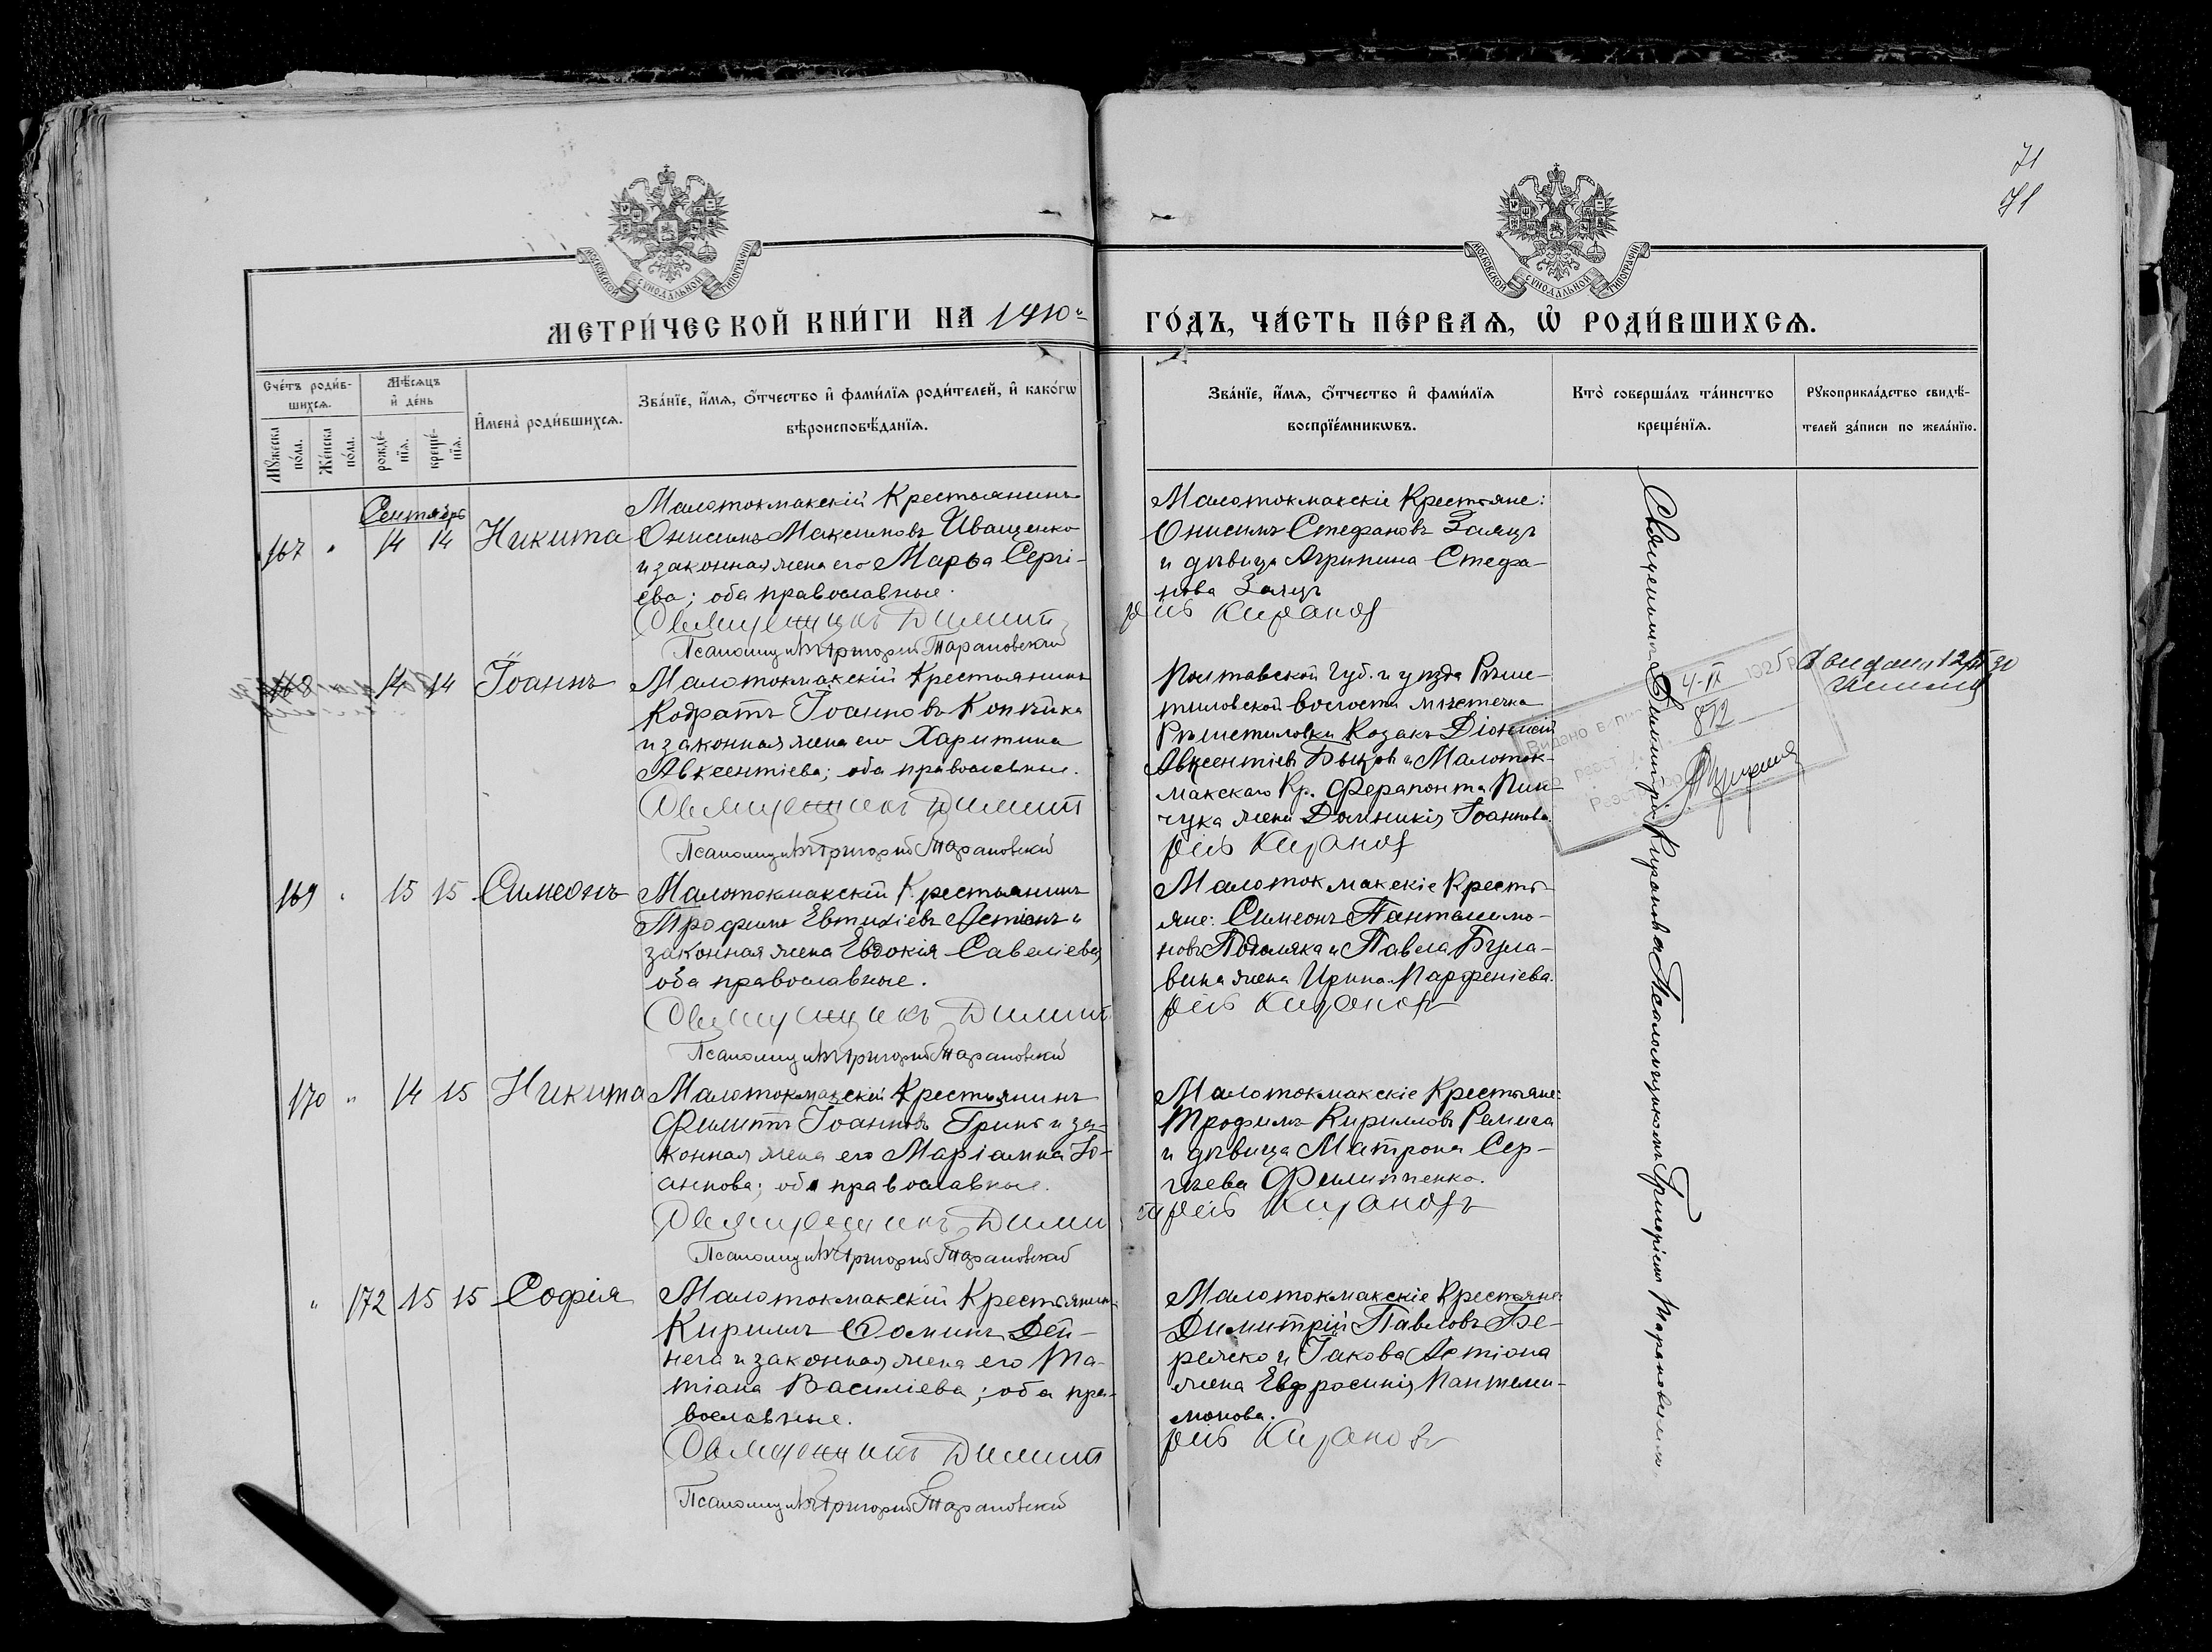 71
71
МОСКОВСКОЙ СѴНОДАЛЬНОЙ ТИПОГРАФІИ
МОСКОВСКОЙ СѴНОДАЛЬНОЙ ТИПОГРАФІИ
МЕТРИ́ЧЕСКОЙ КНИ́ГИ НА 1910 ГО́ДЪ, ЧА́СТЬ ПЕ́РВАѦ, Ѡ҆ РОДИ́ВШИХСѦ.
Сче́тъ роди́в-
шихсѧ.
Мꙋ́жеска по́ла.
Же́нска по́ла.
Мѣ́сѧцъ и҆ де́нь
рожде́-нїѧ.
креще́-нїѧ.
И҆мена̀ роди́вшихсѧ.
Зва́нїе, и҆́мѧ, ѻ҆́тчество и҆ фами́лїѧ роди́телей, и҆ како́гѡ
вѣроисповѣ́данїѧ.
Зва́нїе, и҆́мѧ, ѻ҆́тчество и҆ фами́лїѧ
воспрїе́мникѡвъ.
Кто̀ соверша́лъ та́инство
креще́нїѧ.
Рꙋкоприкла́дство свидѣ́-
телей за́писи по жела́нїю.
Сентябрь
167 " 14 14 Никита
Малотокмакскій Крестьянинъ
Онисимъ Максимовъ Иващенко
и законная жена его Марѳа Сергі-
ева; оба православные.
Священникъ Димит
Псаломщикъ Григорій Тарановскій
Малотокмакскіе Крестьяне:
Онисимъ Стефановъ Заяцъ
и дѣвица Агрипина Стефа-
нова Заяцъ
рій Киранов
168 14 14 Іоаннъ
Малотокмакскій Крестьянинъ
Кодратъ Іоанновъ Копѣйка
и законная жена его Харитина
Авксентіева; оба православные.
Священникъ Димит
Псаломщикъ Григорій Тарановскій
Полтавской Губ. и уѣзда Рѣше-
тиловской волости мѣстечка
Рѣшетиловки Козакъ Діонисій
Авксентіевъ Быковъ и Малоток-
макскаго Кр. Ферапонта Пин-
чука жена Домникія Іоаннова.
рій Киранов
Видано
4-II 1925 р
872
169 " 15 15 Симеонъ
Малотокмакскій Крестьянинъ
Трофимъ Евтихіевъ Остіонъ и
законная жена Евдокія Савеліева,
оба православные.
Священникъ Димит
Псаломщикъ Григорій Тарановскій
Малотокмакскіе Кресть-
яне: Симеонъ Пантелимо-
новъ Подоляка и Павла Була-
вина жена Ирина Парфеніева.
рій Киранов
170 " 14 15 Никита
Малотокмакскій Крестьянинъ
Филиппъ Іоанновъ Гринь и за-
конная жена его Маріамна Іо-
аннова; оба православные.
Священникъ Дими
Псаломщикъ Григорій Тарановскій
Малотокмакскіе Крестьяне:
Трофимъ Кирилловъ Ремига
и дѣвица Матрона Сер-
гѣева Филипченко.
трій Кирановъ
" 172 15 15 Софія
Малотокмакскій Крестьянинъ
Кириллъ Ѳоминъ Дей-
нега и законная жена его Та-
тіана Василіева; оба пра-
вославные.
Священникъ Димит
Псаломщикъ Григорій Тарановскій
Малотокмакскіе Крестьяне
Димитрій Павловъ Бе-
режко и Іакова Остіона
жена Евфросинія Пантели-
монова.
рій Киранов
Священникъ Димитрій Кирановъ Псаломщикомъ Григоріемъ Тарановскимъ.